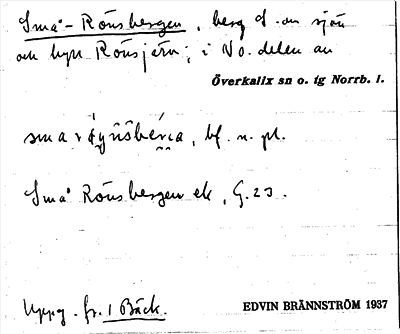 Små-Rönsbergen, berg S. om sjön
och byn Rönsjärv; i No. delen av
Överkalix sn o. tg Norrb. l.
bf. n. pl.
Små Rönsbergen ek, G. 23.
Uppg. fr. 1 Bäck.
EDVIN BRÄNNSTRÖM 1937